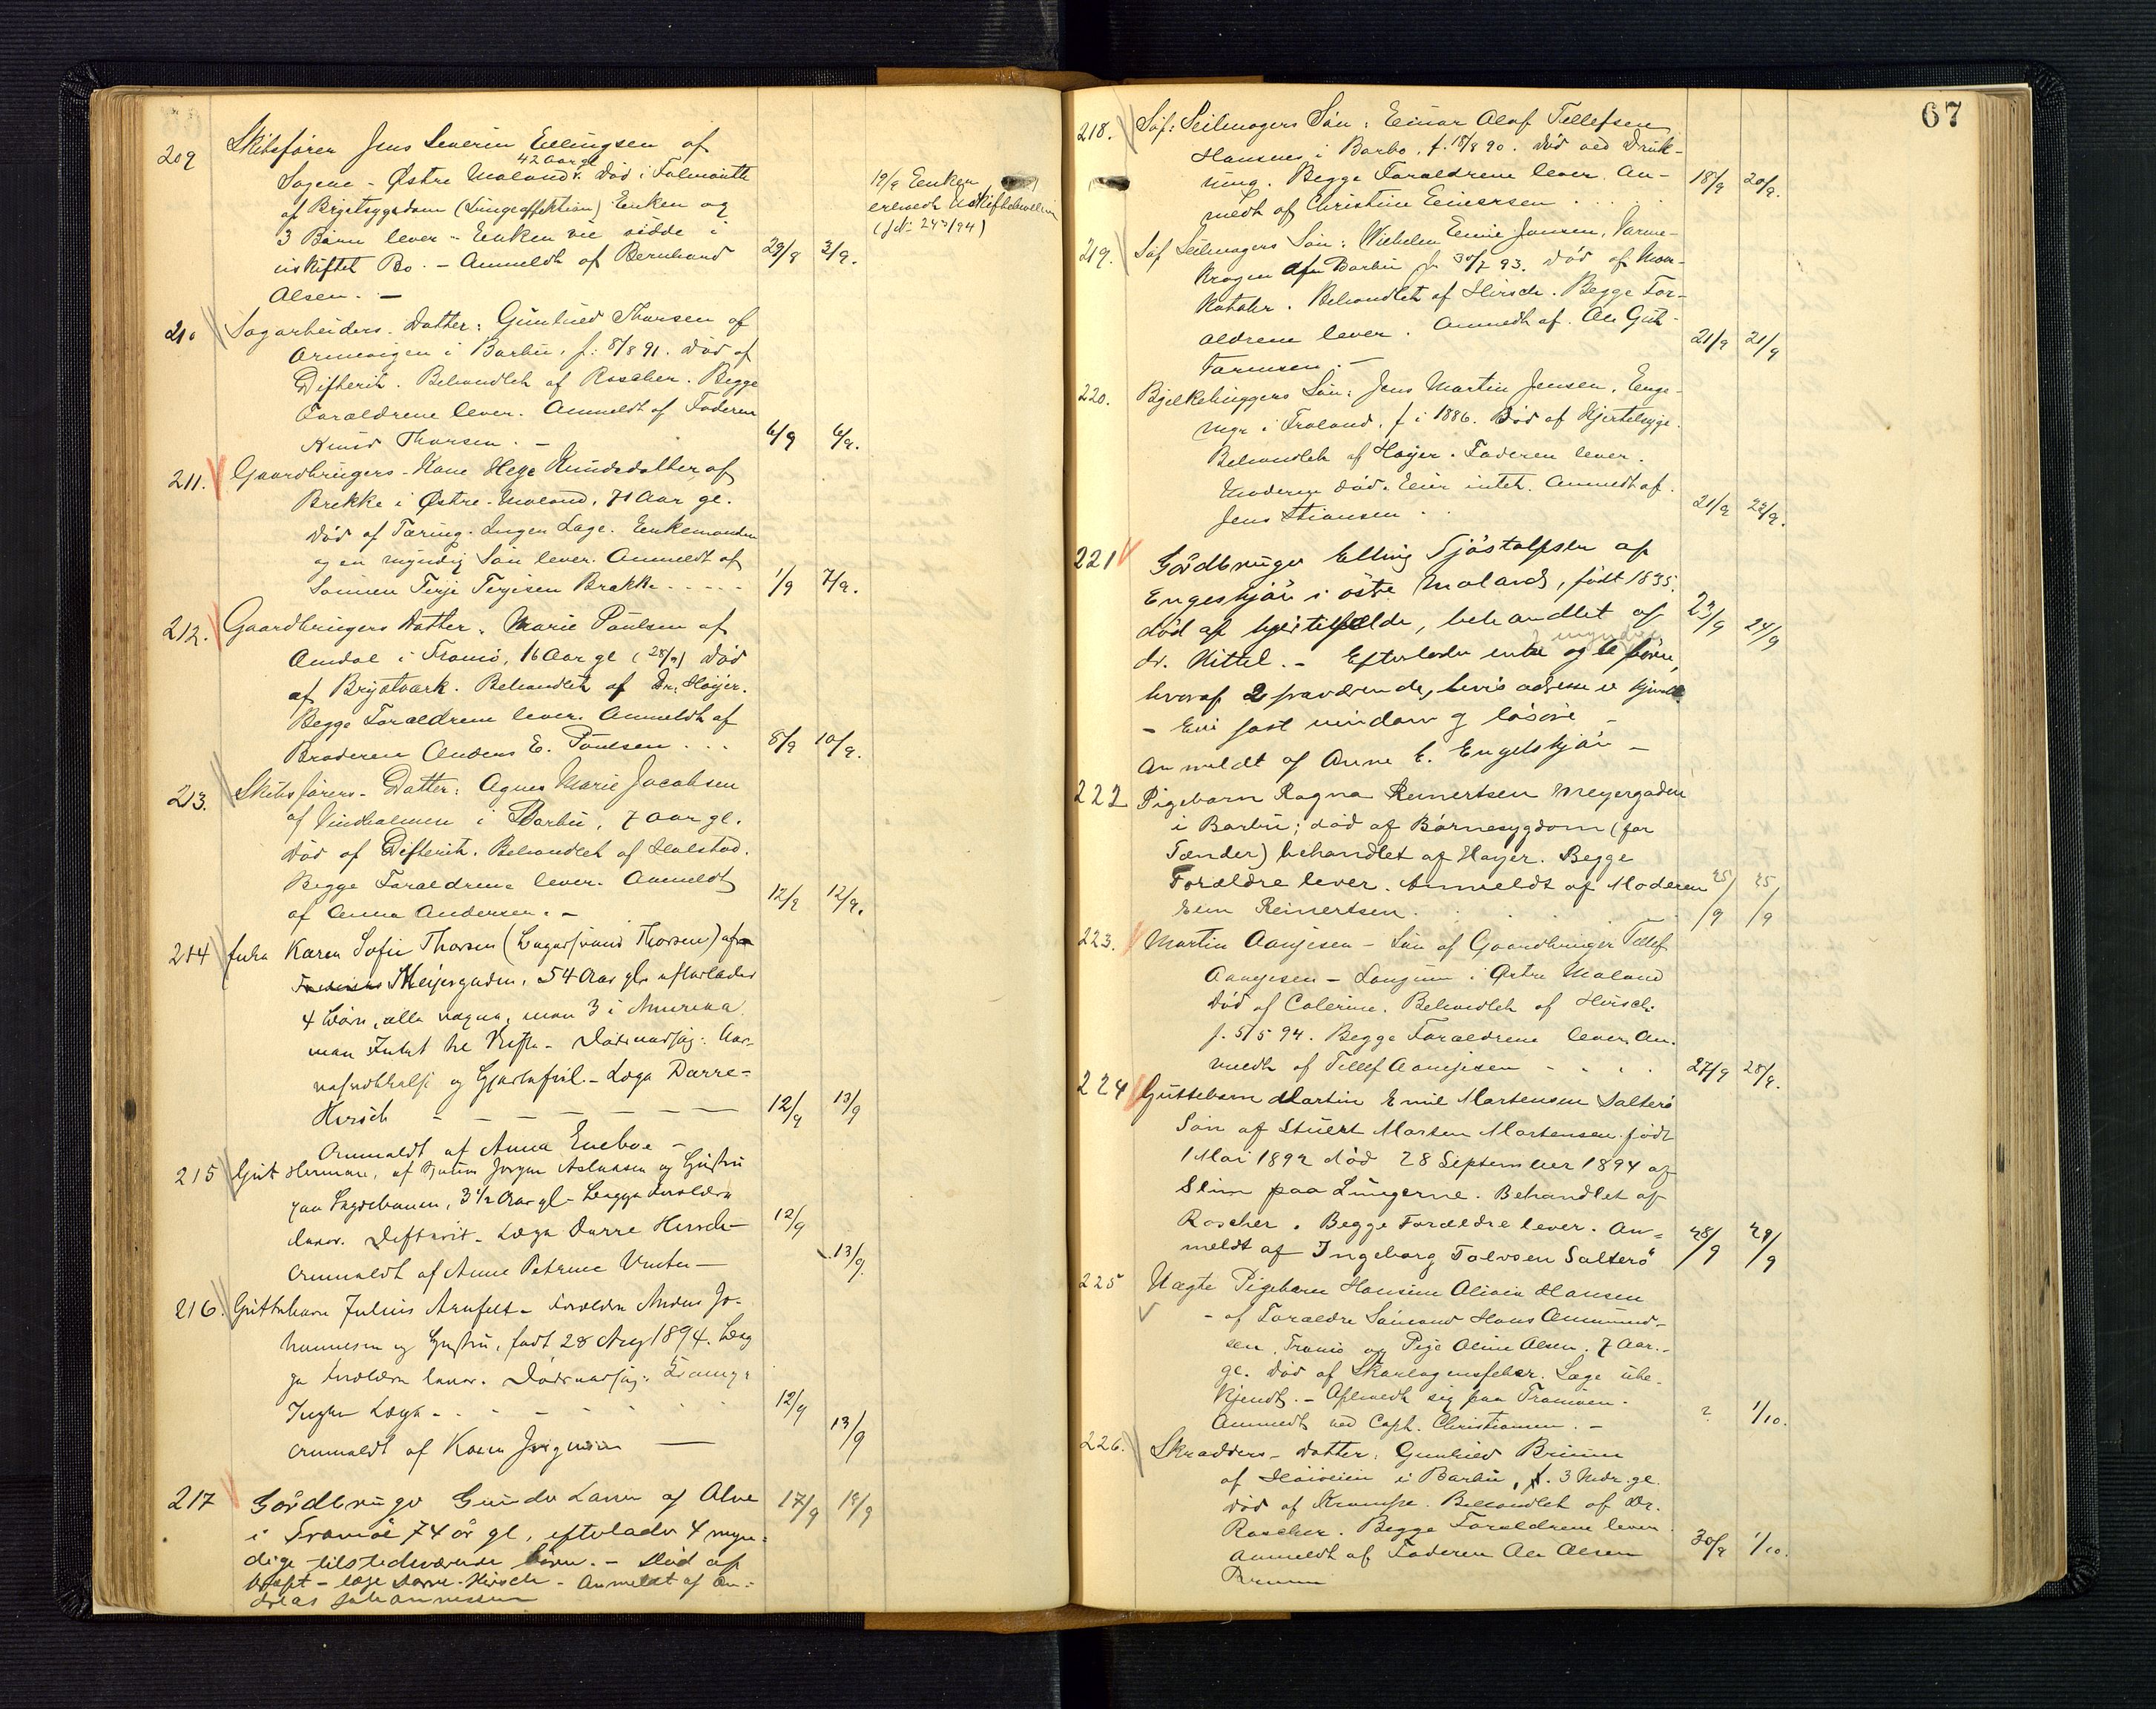 209 Skibsfører Jens Severin Ellingsen af
42 Aar gl.
Sagene - Østre Moland. Død i Falmouth
af Brystsygdom (Lungeaffektion) Enken og
3 Børn lever - Enken vil sidde i
uskiftet Bo. - Anmeldt af Bernhard 29/8 3/9.
Olsen. -
12/9 Enken
erholdt Uskiftebevilling
(J.N: 243/94)
210 Sagarbeiders Datter: Gunhild Thorsen af
i Barbu, f: 8/8 91. Død af
Difterit. Behandlet af Roscher. Begge
Forældrene lever. Anmeldt af Faderen
Knud Thorsen. - 6/9 6/9.
211. Gaardbrugers Kone Hege Knudsdatter af
Brekke i Østre-Moland, 71 Aar gl.
Død af Tæring. Ingen Læge. Enkemanden
og en myndig Søn lever. Anmeldt af
Sønnen Terje Terjesen Brekke - - - - - 1/9 7/9.
212. Gaardbrugers Datter: Marie Poulsen af
Amdal i Tromø, 16 Aar gl (28/9) Død
af Brystværk. Behandlet af Dr. Høyer.
Begge Forældrene lever. Anmeldt af
Broderen Anders E. Poulsen . . . 8/9 10/9.
213. Skibsførers - Datter: Agnes Marie Jacobsen
af Vindholmen i Barbu, 7 Aar gl.
Død af Difterit. Behandlet af Halstad.
Begge Forældrene lever. Anmeldt
af Anna Andersen. - 12/9 12/9.
214 Enke Karen Sofie Thorsen ( Thorsen) af
Meijergaden, 54 Aar gl. efterlader
4 Børn, alle , men 3 i Amerika
men Intet til Skifte - Dødsaarsag:
og Hjertefeil. - Læge Darre-
Hirsch - - - - - - - 12/9 13/9
Anmeldt af Anna Eneboe -
215 Gut Herman, af Jørgen Aslaksen og Hustru
paa , 3 1/2 Aar gl - Begge Forældre
lever. Difterit - Læge Darre Hirsch - 12/9
Anmeldt af Anne Petrine - 13/9.
216. Guttebarn Julius - Forældre Anders Jo-
hannesen og Hustru, født 28 Aug 1894. Beg
ge Forældre lever. Dødsaarsag: Krampe
Ingen Læge - . - - - . . . 12/9
Anmeldt af Karen Jørgensen - 13/9
217 Gårdbruger Gunder Larsen af Alve 17/9 18/9
i Tromø 74 år gl, efterlader 4 myn-
dige tilstedeværende børn. - Død af
kræft - læge Darre-Hirsch - Anmeldt af An-
dreas Johannessen
67
218. Søf: Seilmagers Søn: Einar Olaf Tellefsen
i Barbo, f. 18/8 90. Død ved Druk-
ning. Begge Forældrene lever. An- 18/9 20/9.
meldt af Christine Einersen . . . .
219. Søf Seilmagers Søn: Wilhelm Emil Jansen,
krogen af Barbu f. 30/7 93. Død af Mave-
katahr. Behandlet af Hirsch. Begge For-
ældrene lever. Anmeldt af. Ole Gut- 21/9 21/9
tormsen. -
220. Bjelkehuggers Søn: Jens Martin Jensen, Enge-
i Froland, f i 1886. Død af Hjertesyge.
Behandlet af Høyer. Faderen lever.
Moderen død. Eier intet. Anmeldt af.
Jens Stiansen . . 21/9 22/9.
221 Gårdbruger Elling Sjøstolfsen af
Engeskjær i østre Moland, født 1835.
død af hjertefælde, behandlet af 23/9 24/9
myndige
dr. Kittel. - Efterlader enke og børn,
hvoraf 2 fraværende, hvis adresse er kjendt
- Eier fast eiendom og løsøre -
Anmeldt af Anne E. Engelskjær -
222 Pigebarn Ragna Reinertsen Meyergaden
i Barbu; død af Børnesygdom (for
Tænder) behandlet af Høyer. Begge
Forældre lever. Anmeldt af Moderen 25/9 25/9
Elen Reinertsen. . . . .
223. Martin Aanjesen - Søn af Gaardbruger Tellef
Aanjesen - Longum i Østre Moland
Død af Colerine. Behandlet af Hirsch.
f. 5/5 94. Begge Forældrene lever. An.
meldt af Tellef Aanjesen - - . . 27/9 28/9.
224 Guttebarn Martin Emil Martensen Salterø
Søn af Stuert Morten Mortensen født
1 Mai 1892 død 28 September 1894 af
Slim paa Lungerne. Behandlet af
Roscher. Begge Forældre lever. An- 28/9 29/9
meldt af Ingeborg Tolvsen Salterø
225 Uægte Pigebarn Hansine Olivia Hansen
- af Forældre Sømand Hans Anmund-
sen, Tromø og Pige Oline Olsen. 7 Aar.
gl. Død af Skarlagensfeber. Læge ube-
kjendt. - Opholdt sig paa Tromøen.
Anmeldt ved Capt. Christiansen. - ? 1/10.
226. Skrædders - Datter: Gunhild Bruun
af Høiveien i Barbu, f. 3 Mdr. gl.
Død af Krampe. Behandlet af Dr.
Roscher. Begge Forældrene lever
Anmeldt af Faderen Ole Olsen 30/9 1/10.
Bruun